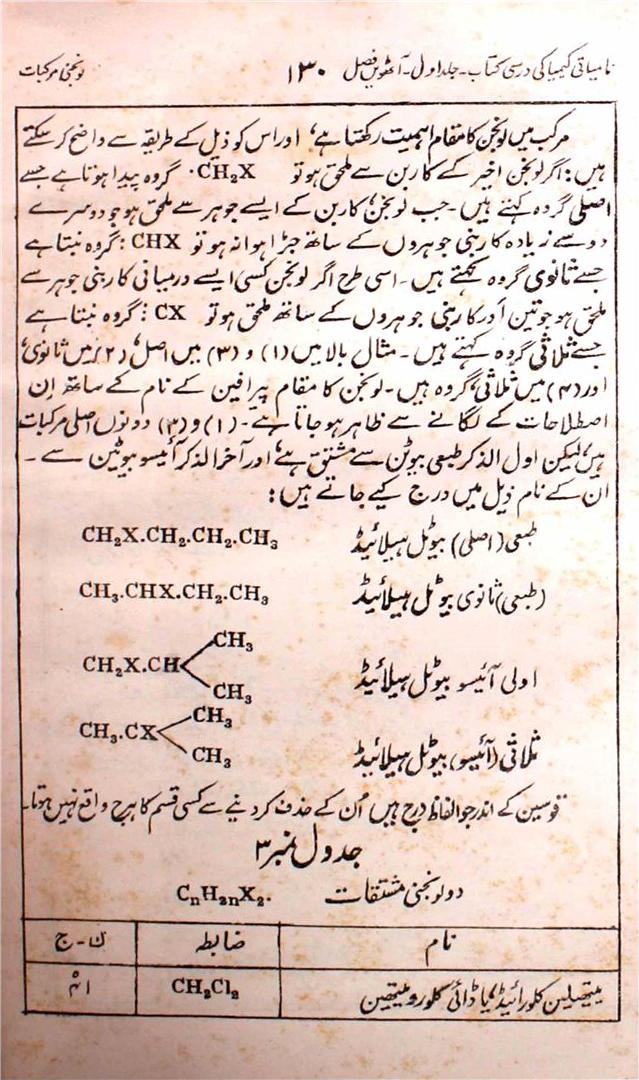 نامیاتی کیمیا کی درسی کتاب۔جلد اول۔آٹھویں فصل ۱۳۰ لونجنی مرکبات
مرکب میں لونجن کا مقام اہمیت رکھتا ہے، اور اس کو ذیل کے طریقہ سے واضح کر سکتے
ہیں: اگر لونجن اخیر کے کاربن سے ملحق ہو تو CH₂X· گروہ پیدا ہوتا ہے جسے
اصلی گروہ کہتے ہیں۔ جب لونجن، کاربن کے ایسے جوہر سے ملحق ہو جو دوسرے
دو سے زیادہ کاربنی جوہروں کے ساتھ جڑا ہوا نہ ہو تو CHX: گروہ بنتا ہے
جسے ثانوی گروہ کہتے ہیں۔ اسی طرح اگر لونجن کسی ایسے درمیانی کاربنی جوہر سے
ملحق ہو جو تین اور کاربنی جوہروں کے ساتھ ملحق ہو تو CX⋮ گروہ بنتا ہے
جسے ثلاثی گروہ کہتے ہیں۔ مثال بالا میں (۱) و (۳) میں اصلی، (۲) میں ثانوی،
اور (۴) میں ثلاثی، گروہ ہیں۔ لونجن کا مقام پیرافین کے نام کے ساتھ ان
اصطلاحات کے لگانے سے ظاہر ہو جاتا ہے۔ (۱) و (۳) دونوں اصلی مرکبات
ہیں، لیکن اول الذکر طبعی بیوٹن سے مشتق ہے، اور آخر الذکر آئیسو بیوٹین سے ۔
ان کے نام ذیل میں درج کیے جاتے ہیں:
طبعی (اصلی) بیوٹل ہیلائیڈ CH₂X.CH₂.CH₂.CH₃
(طبعی) ثانوی بیوٹل ہیلائیڈ CH₃.CHX.CH₂.CH₃
CH₃
اولی آئیسو بیوٹل ہیلائیڈ CH₂X.CH
CH₃
CH₃
ثلاثی (آئیسو) بیوٹل ہیلائیڈ CH₃.CX
CH₃
قوسین کے اندر جو الفاظ درج ہیں اُن کے حذف کر دینے سے کسی قسم کا ہرج واقع نہیں ہوتا۔
جدول نمبر ۳
دولونجنی مشتقات CₙH₂ₙX₂.
نام ضابطہ ن۔ج
میتھیلین کلورائیڈ، یا ڈائی کلورو میتھین CH₂Cl₂